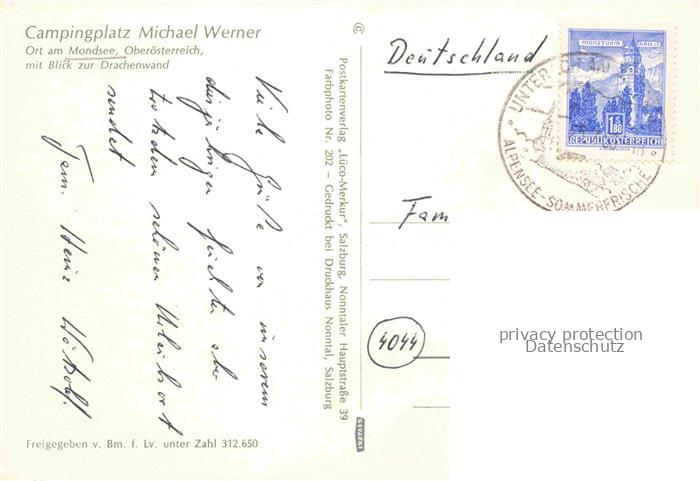 Campingplatz Michael Werner
Ort am Mondsee, Oberösterreich,
mit Blick zur Drachenwand
Viele Grüße von unserem
diesjährigen feuchten aber
trotzdem schönen Urlaubsort
sendet
Fam. Heinz
Freigegeben v. Bm. f. Lv. unter Zahl 312.650
©
Postkartenverlag „Lüco-Merkur", Salzburg, Nonntaler Hauptstraße 39
Farbphoto Nr. 202 – Gedruckt bei Druckhaus Nonntal, Salzburg
GEVAERT
Deutschland
MÜNZTURM HALL I.T.
1.80
S
REPUBLIK ÖSTERREICH
UNTER
ALPENSEE-SOMMERFRISCHE
Fam
4044
privacy protection
Datenschutz